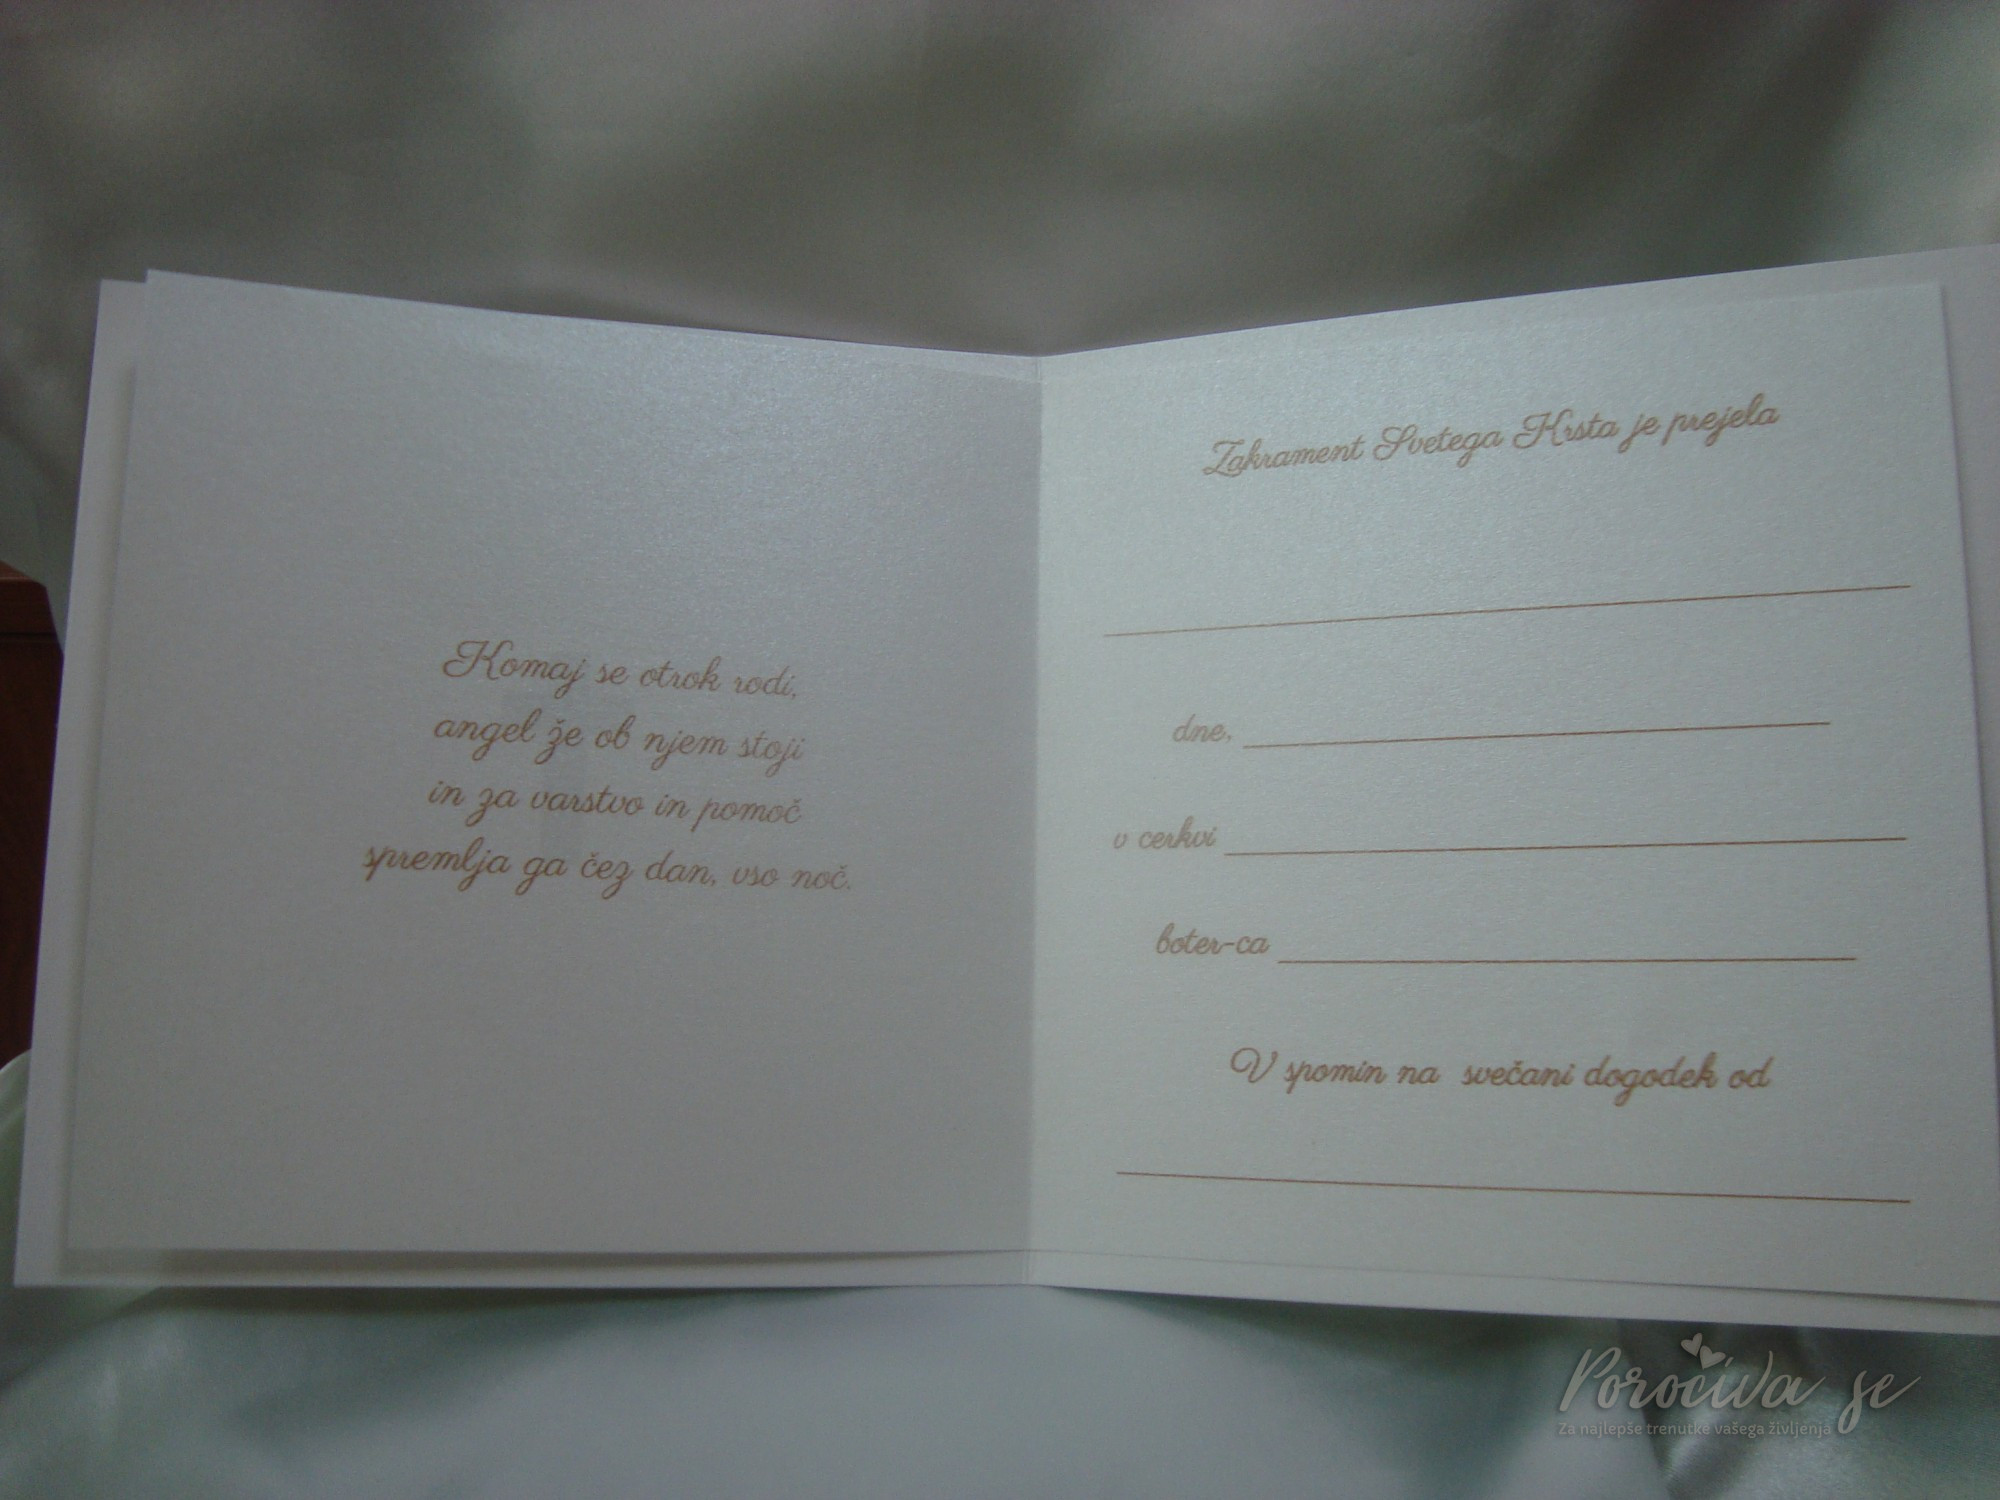 Komaj se otrok rodi,
angel že ob njem stoji
in za varstvo in pomoč
spremlja ga čez dan, vso noč.
Zakrament Svetega Krsta je prejela
dne,
v cerkvi
boter-ca
V spomin na svečani dogodek od
Poročiva se
Za najlepše trenutke vašega življenja